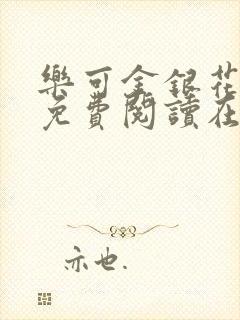 樂可金銀花
免費閱讀在
亦也.